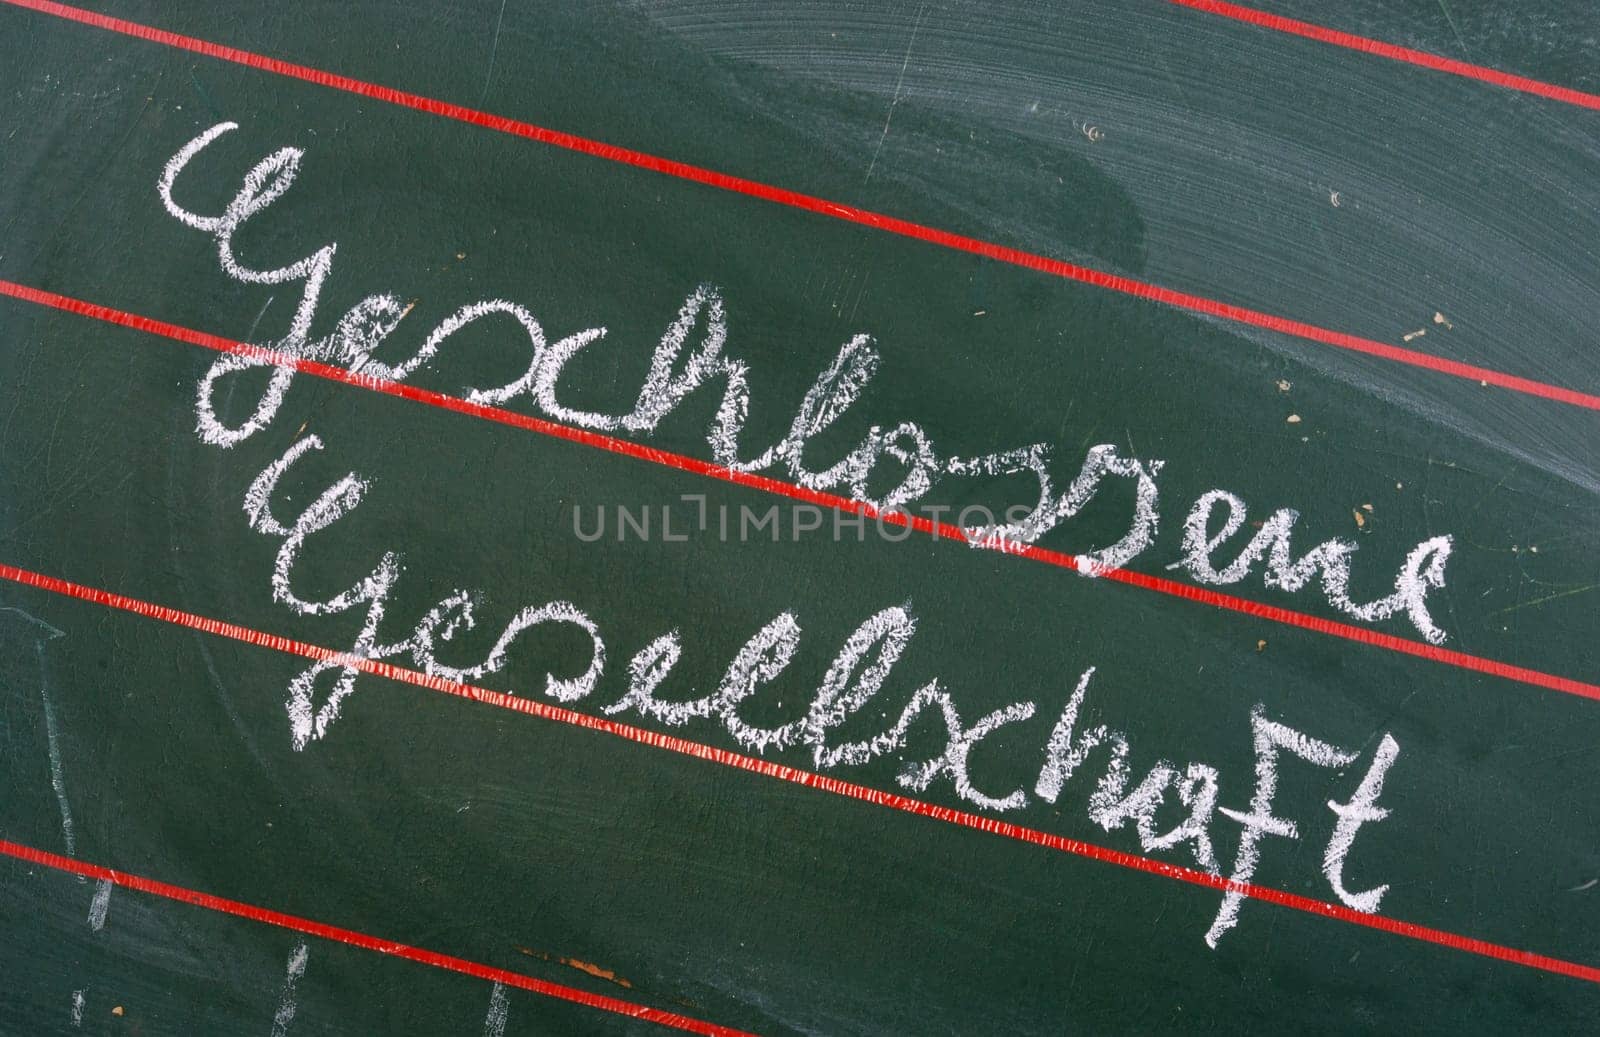 Geschlossene
Gesellschaft
UNLIMPHOTOS